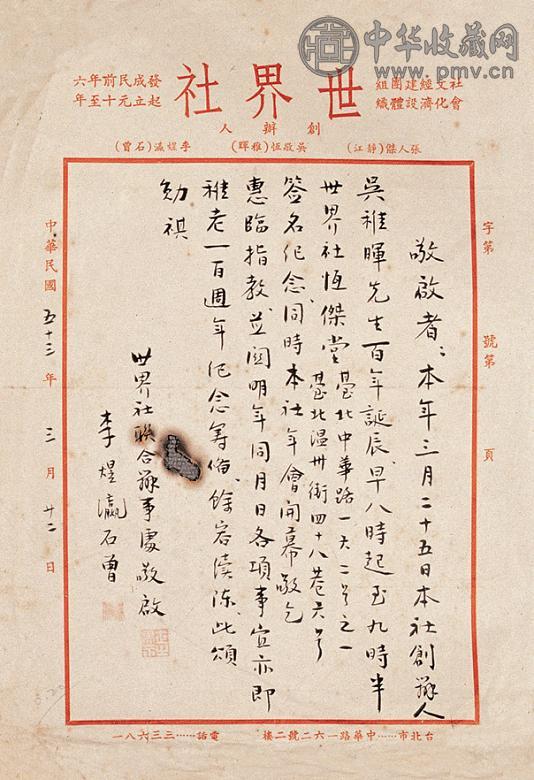 中华收藏网
www.pmv.cn
發起民前六年
成立元年至十年
世界社
社會文化經濟建設團體組織
創辦人
張人傑(靜江) 吳敬恆(稚暉) 李煜瀛(石曾)
字第 號第 頁
敬啟者:本年三月二十五日本社創辦人
吳稚暉先生百年誕辰,早八時起至九時半
世界社恆傑堂臺北中華路一六二号之一
臺北溫州街四十八巷六号
簽名紀念,同時本社年會開幕,敬乞
惠臨指教,並関明年同月日各項事宜亦即
稚老一百週年紀念籌備,餘容續陳,此頌
勛祺
世界社联合辦事處敬啟
李煜瀛石曾
中華民國五十三年三月廿二日
台北市……中華路一六二號二樓 電話……三三六八一